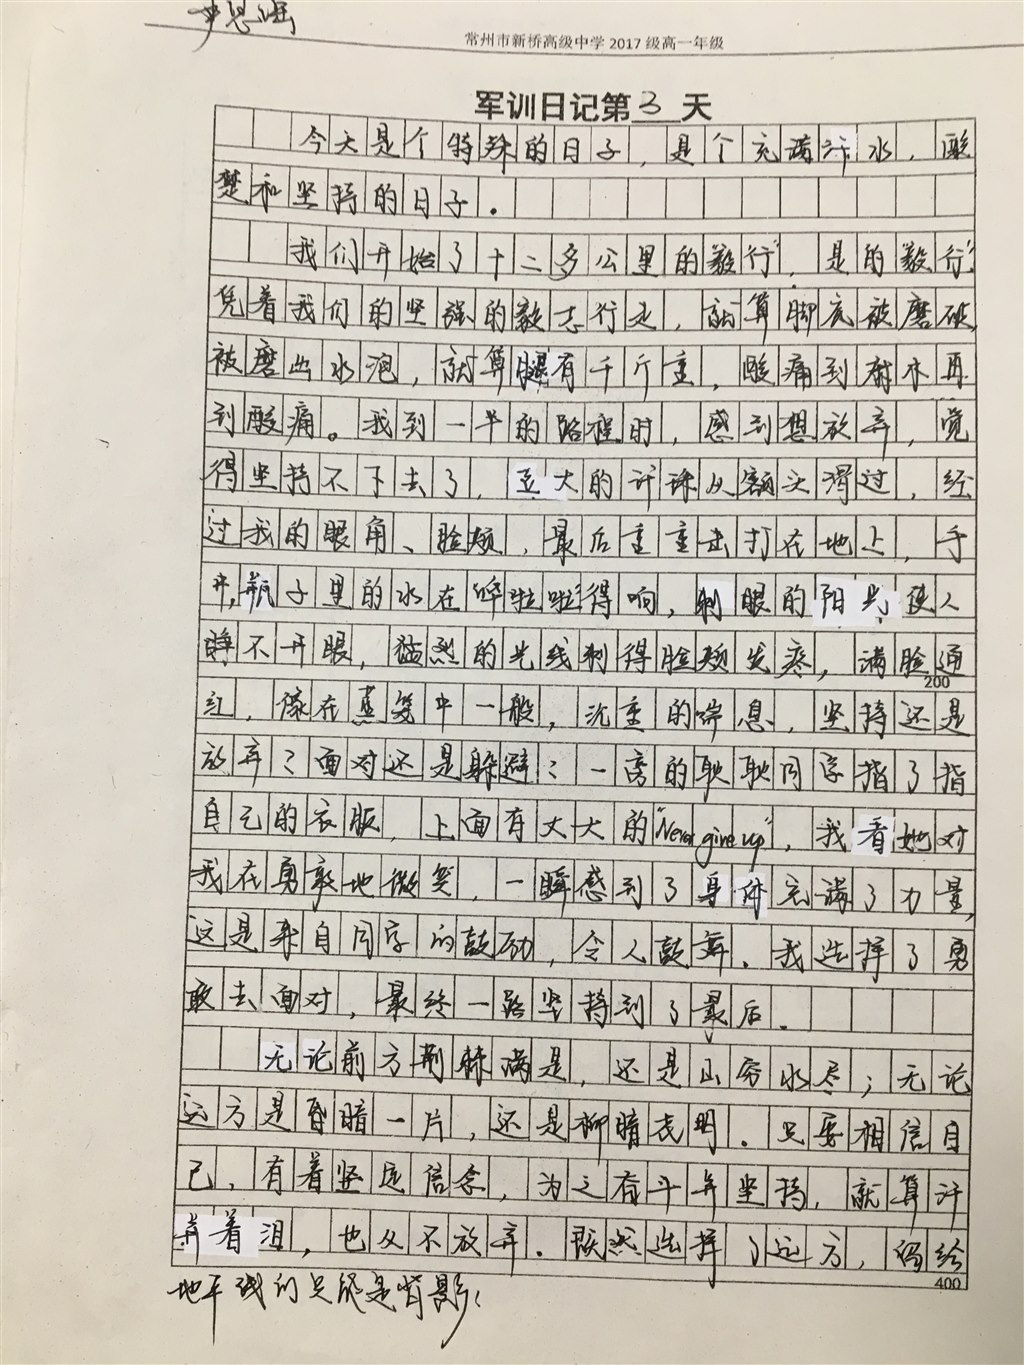 常州市新桥高级中学2017级高一年级
军训日记第3天
今天是个特殊的日子，是个充满汗水，酸
楚和坚持的日子。
我们开始了十二多公里的毅行"，是的毅行"
凭着我们的坚强的毅志行走，就算脚底被磨破
被磨出水泡，就算腿有千斤重，酸痛到麻木再
到酸痛。我到一半的路程时，感到想放弃，觉
得坚持不下去了，豆大的汗珠从额头滑过，经
过我的眼角、脸颊，最后重重击打在地上，手
中，瓶子里的水在"哗啦啦"得响，刺眼的阳光使人
睁不开眼，猛烈的光线刺得脸颊发疼，满脸通
200
红，像在蒸笼中一般，沉重的喘息，坚持还是
放弃？面对还是躲避？一旁的耿耿同学指了指
自己的衣服，上面有大大的"Never give up"，我看她对
我在勇敢地微笑，一瞬感到了身体充满了力量，
这是来自同学的鼓励，令人鼓舞。我选择了勇
敢去面对，最终一路坚持到了最后。
无论前方荆棘满是，还是山穷水尽；无论
远方是昏暗一片，还是柳暗花明。只要相信自
己，有着坚定信念，为之奋斗并坚持，就算汗
并着泪，也从不放弃。既然选择了远方，留给
400
地平线的只能是背影！